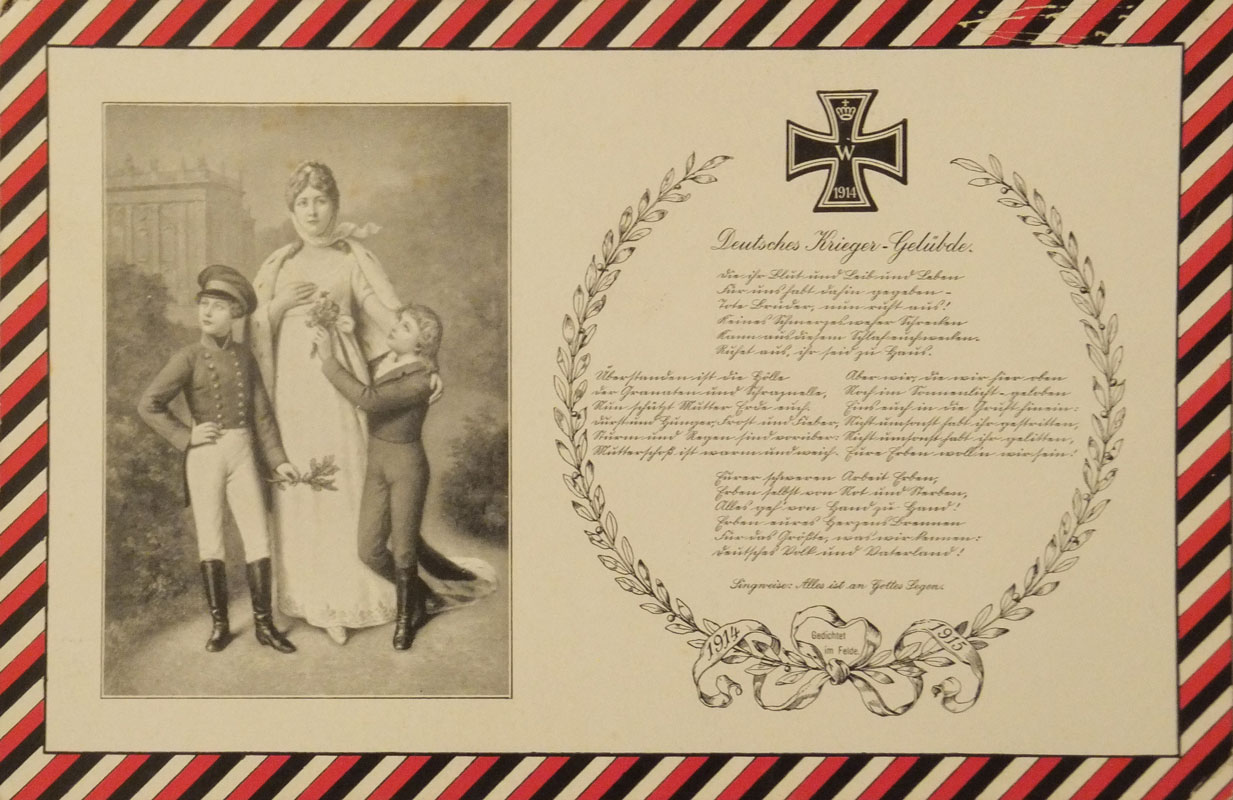 W
1914
Deutsches Krieger-Gelübde.
Die ihr Blut und Leib und Leben
Für uns habt dahin gegeben –
Tote Brüder, nun ruht aus!
Keines Schmerzes weher Schrecken
Kann aus diesem Schlaf euch wecken.
Ruhet aus, ihr seid zu Haus.
Überstanden ist die Hölle
der Granaten und Schrapnelle,
Nun schützt Mutter Erde euch.
Durst und Hunger, Frost und Fieber,
Sturm und Regen sind vorüber:
Mutterschoß ist warm und weich.
Aber wir, die wir hier oben
Noch im Sonnenlicht – geloben
Eins euch in die Gruft hinein:
Nicht umsonst habt ihr gestritten,
Nicht umsonst habt ihr gelitten,
Eure Erben woll'n wir sein!
Eurer schweren Arbeit Erben,
Erben selbst von Not und Sterben,
Alles geh' von Hand zu Hand!
Erben eures Herzens Brennen
Für das Größte, was wir kennen:
Deutsches Volk und Vaterland!
Singweise: Alles ist an Gottes Segen.
1914
Gedichtet
im Felde.
1915